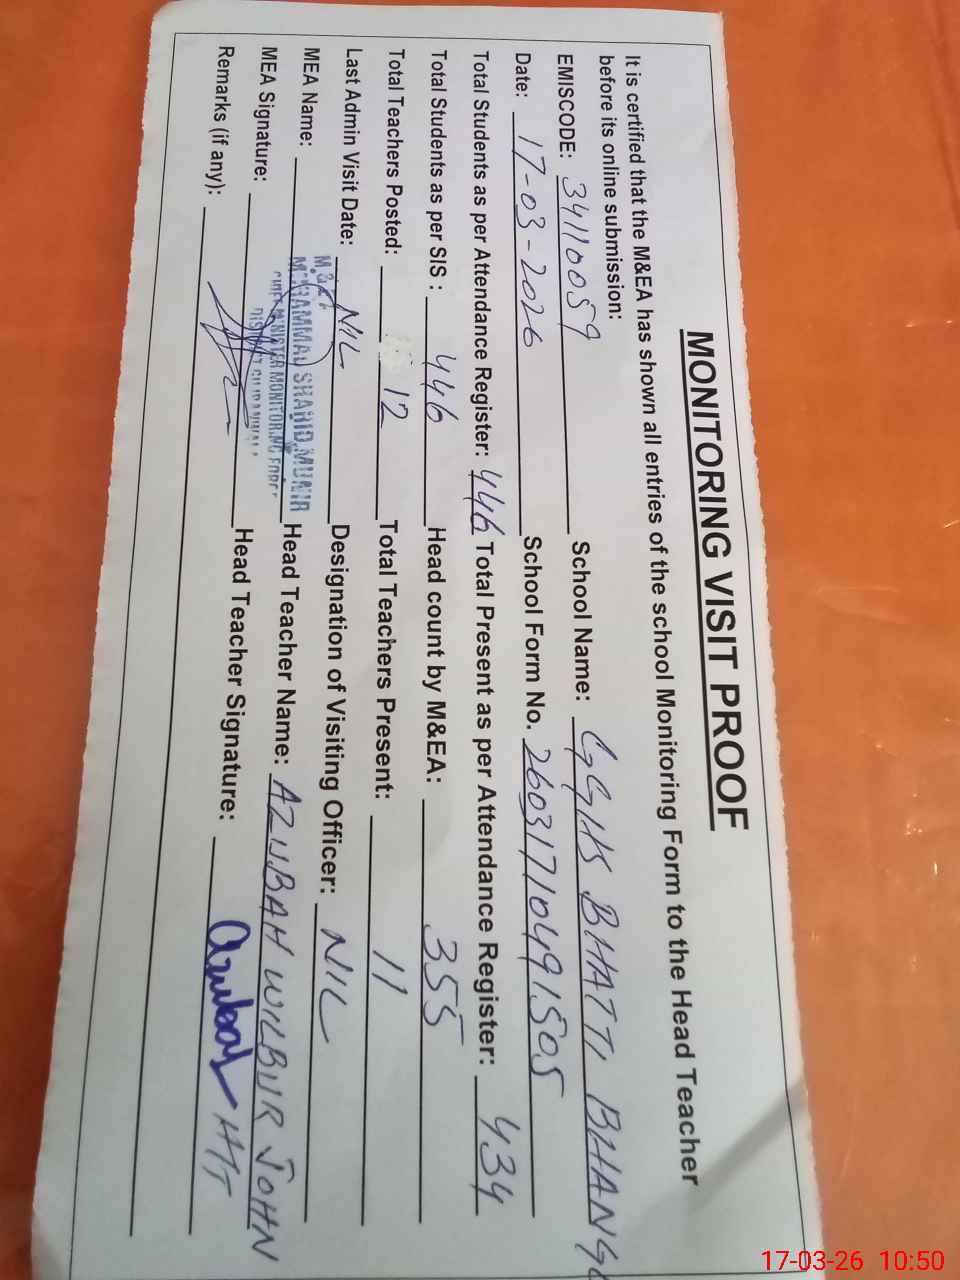 MONITORING VISIT PROOF
It is certified that the M&EA has shown all entries of the school Monitoring Form to the Head Teacher
before its online submission:
EMISCODE: 34110059 School Name: GGHS BHATTI BHANGO
Date: 17-03-2026 School Form No. 26031710491505
Total Students as per Attendance Register: 446 Total Present as per Attendance Register: 434
Total Students as per SIS : 446 Head count by M&EA: 355
Total Teachers Posted: 12 Total Teachers Present: 11
Last Admin Visit Date: NIL Designation of Visiting Officer: NIL
MEA Name: Head Teacher Name: AZUBAH WILBUR JOHN
M.&E.A
MUHAMMAD SHAHID MUNIR
CHIEF MINISTER MONITORING FORCE
DISTRICT GUJRANWALA
MEA Signature: Head Teacher Signature: Azubah HT
Remarks (if any):
17-03-26 10:50